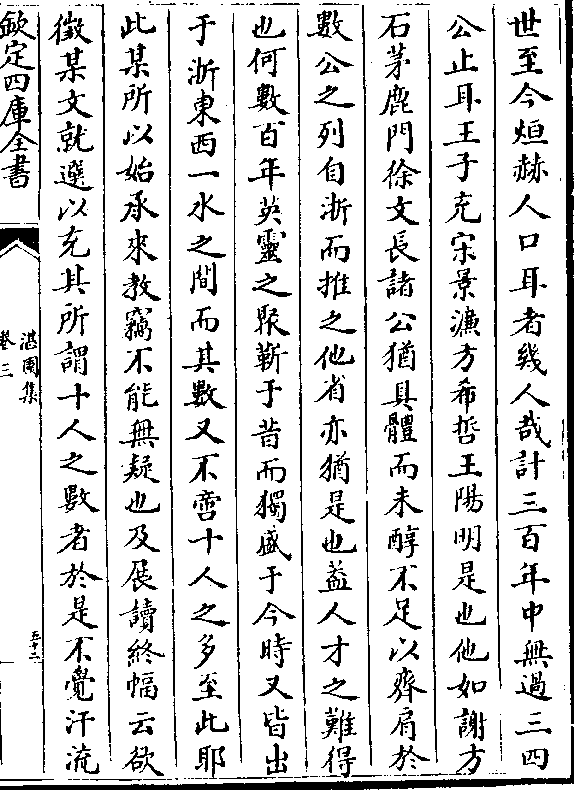 世至今烜赫人口耳者幾人哉計三百年中無過三四
公止耳王子充宋景濂方希哲王陽明是也他如謝方
石茅鹿門徐文長諸公猶具體而未醇不足以齊肩於
數公之列自浙而推之他省亦猶是也葢人才之難得
也何數百年英靈之聚蘄于昔而獨盛于今時又皆出
于浙東西一水之間而其數又不啻十人之多至此耶
此某所以始承來教竊不能無疑也及展讀終幅云欲
徵某文就選以充其所謂十人之數者於是不覺汗流
欽定四庫全書
湛園集
卷三
五十二